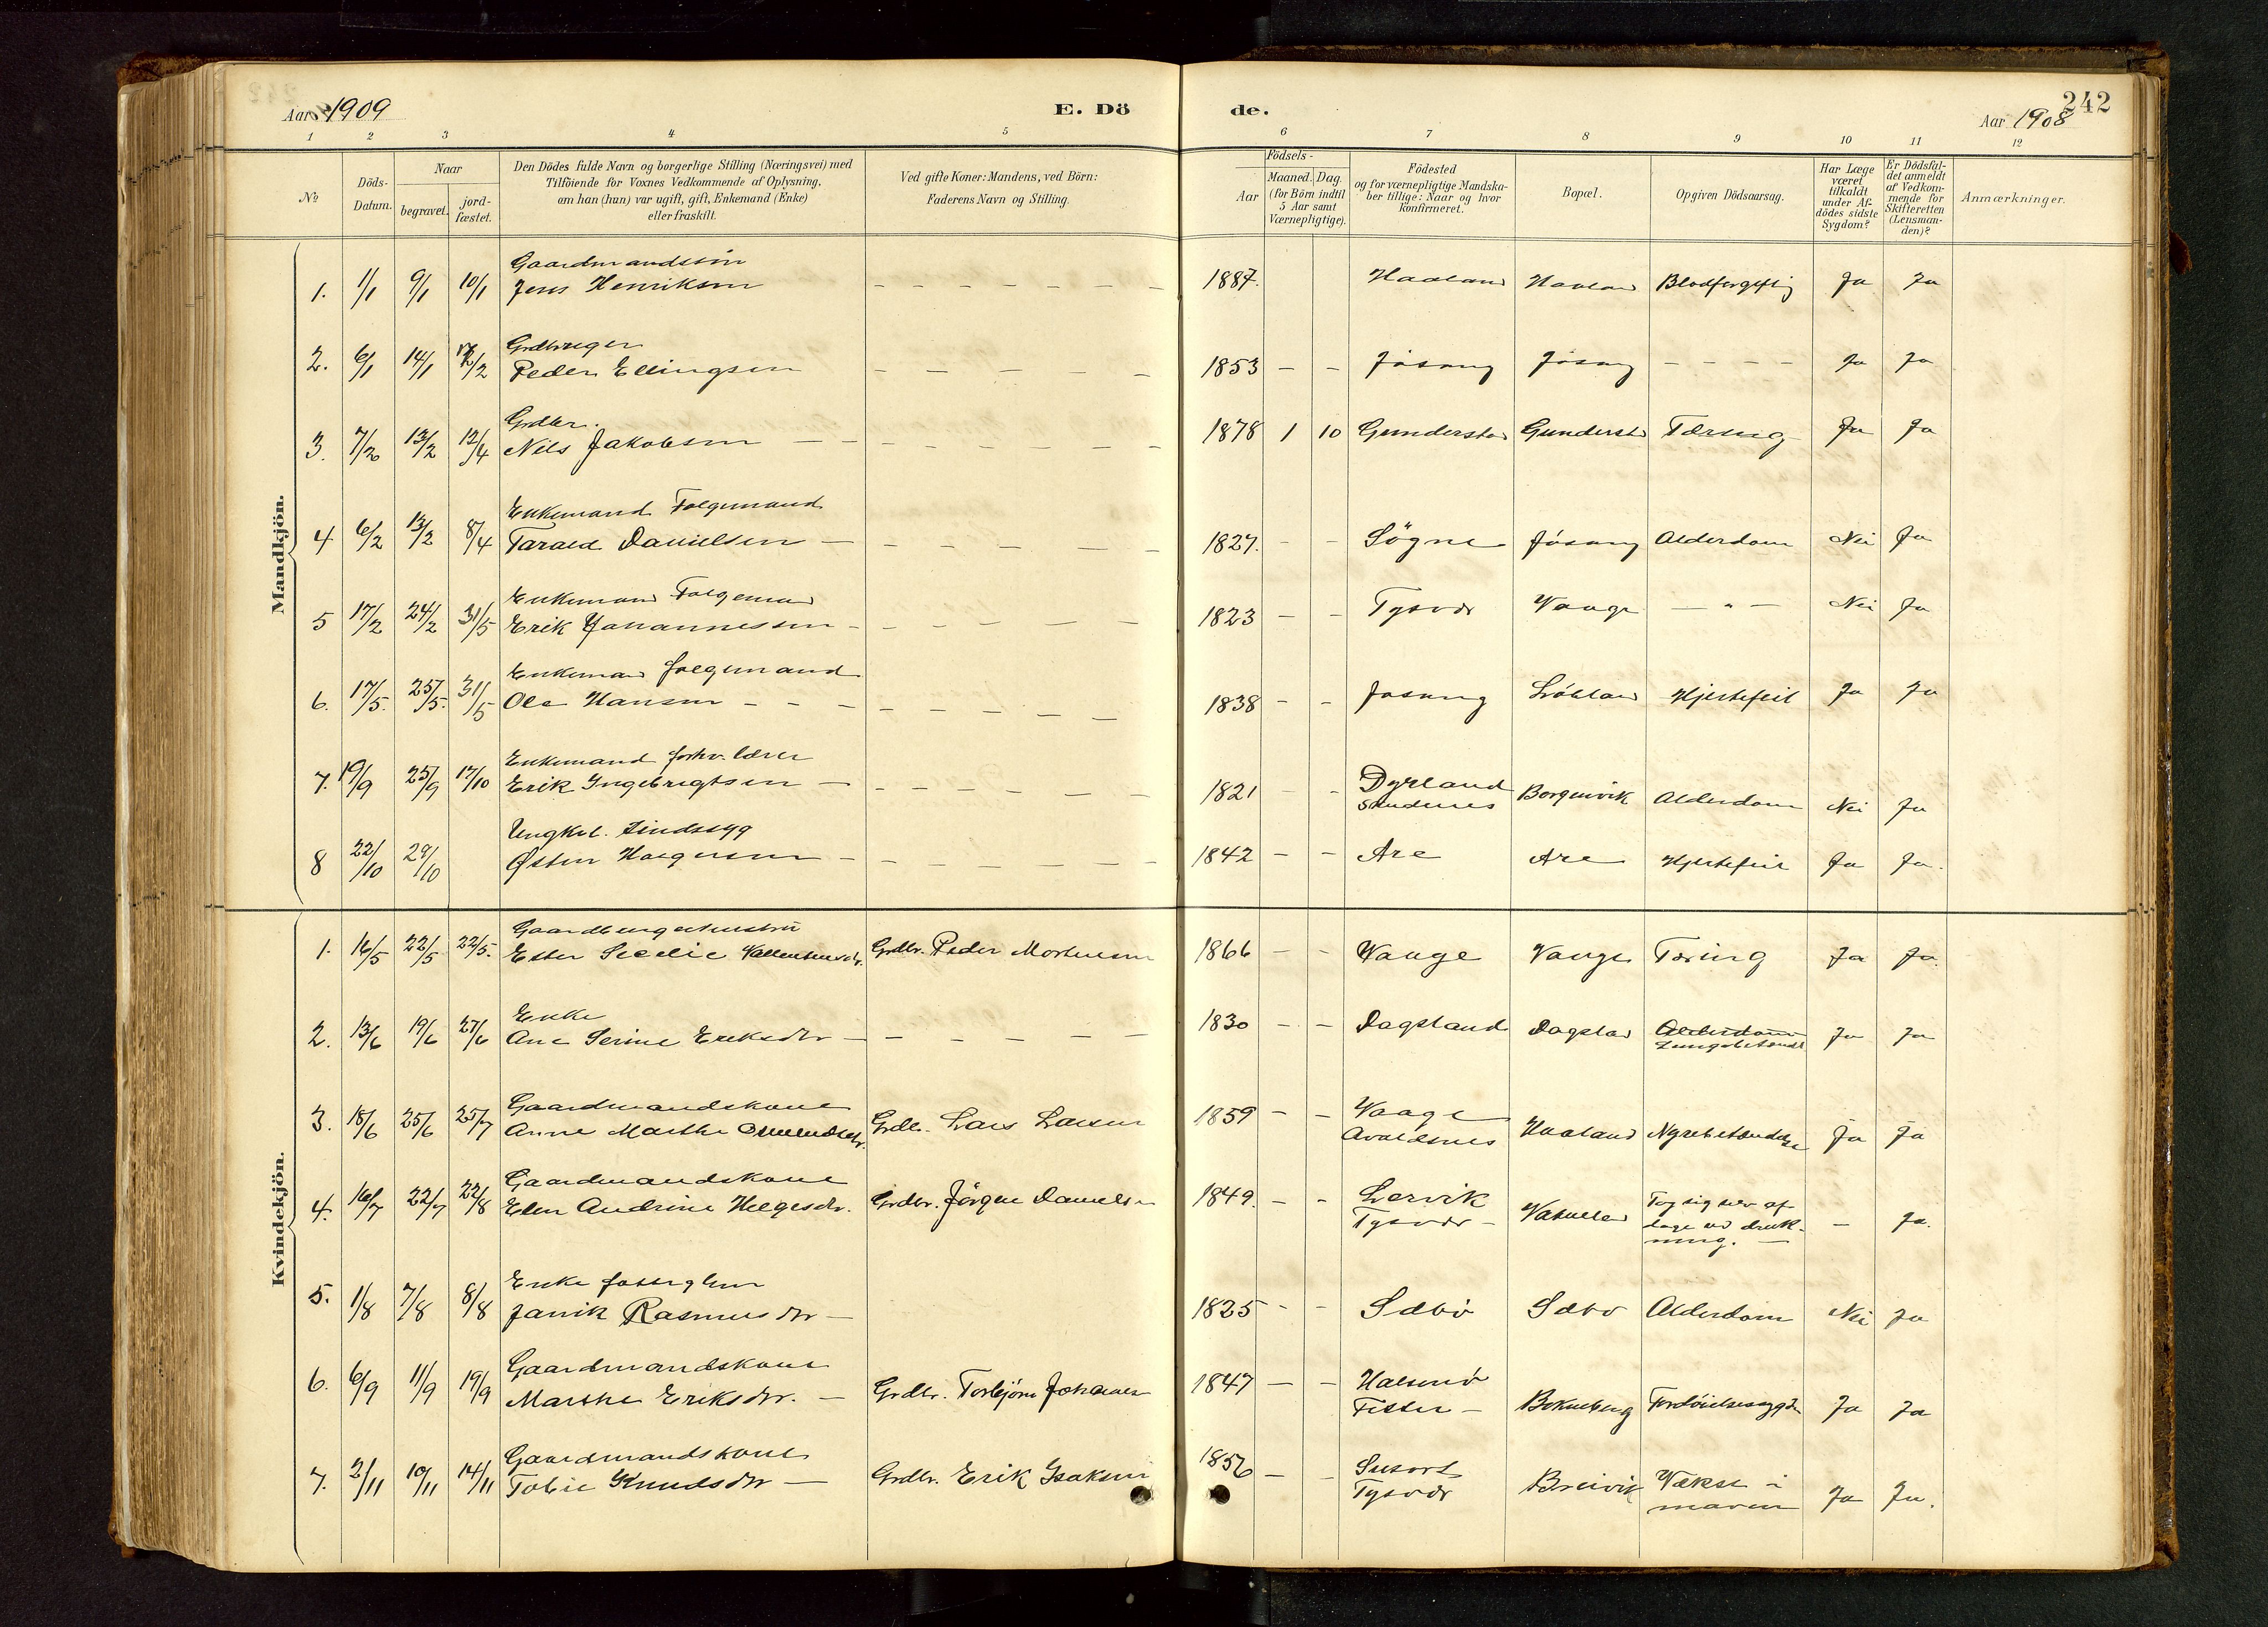 Aar 1909
E. Dö
de.
242
Aar 1908
1 2 3 4 5 6 7 8 9 10 11 12
No
Döds-
Datum.
Naar
begravet.
jord-
fæstet.
Den Dödes fulde Navn og borgerlige Stilling (Næringsvei) med
Tilföiende for Voxnes Vedkommende af Oplysning,
om han (hun) var ugift, gift, Enkemand (Enke)
eller fraskilt.
Ved gifte Koner: Mandens, ved Börn:
Faderens Navn og Stilling.
Aar
Födsels-
Maaned. Dag.
(for Börn indtil
5 Aar samt
Værnepligtige).
Födested
og for værnepligtige Mandska-
ber tillige: Naar og hvor
konfirmeret.
Bopæl.
Opgiven Dödsaarsag.
Har Læge
været
tilkaldt
under Af-
dödes sidste
Sygdom?
Er Dödsfal-
det anmeldt
af Vedkom-
mende for
Skifteretten
(Lensman-
den)?
Anmærkninger.
Mandkjön.
Gaardmandssön
1. 1/1 9/1 10/1 Jens Henriksen – – – – – – – 1887. Haaland Haaland Blodforgiftig Ja Ja
Grdbruger
2. 6/1 14/1 Peder Ellingsen – – – – – 1853 – – Jösang Jösang – – – – Ja Ja
Grdbr.
3. 7/2 13/2 12/4 Nils Jakobsen – – – – – – – – 1878 1 10 Gunderstad Gunderstd Tæring Ja Ja
Enkemand Folgemand
4 6/2 13/2 8/4 Tarald Danielsen – – – – – – – 1827. – – Sögne Jösang Alderdom Nei Ja
Enkemand Folgeman
5 17/2 24/2 31/5 Erik Johannessen – – – – – – 1823 – – Tysvær Vaage – " – Nei Ja
Enkeman folgemand
6. 17/5. 25/5. 31/5 Ole Hansen – – – – – – – – 1838 – – Jøsang Hjertefeil Ja Ja
Enkemand forhv. lærer
7. 19/9 25/9 17/10 Erik Ingebrigtsen – – – – – – – 1821 – – Dyrland
Skudenes Borgenvik Alderdom Nei Ja
Ungkal. Sindssyg
8 22/10 29/10 Østen Halgersen – – – – – – – 1842 – – Are Are Hjertefeil Ja Ja.
Kvindekjön.
1. 16/5 22/5 22/5. Ester Secelie Grdbr. Peder Mortensen 1866 – – Vaage Vaage Tæring Ja Ja.
Enke
2. 13/6 19/6 27/6 Ane Serine Eriksdtr – – – – – – 1830 – – Dagsland Dagsland Alderdom
Lungebetændel Ja Ja
Gaardmandskone
3. 18/6 25/6 25/7 Anne Marthe Omundsdtr. Grdbr. Lars Larsen 1859 – – Vaage
Avaldsnes Haaland Nyrebetændelse Ja Ja
Gaardmandskone
4. 16/7 22/7 22/8 Elen Andrine Helgesdtr. Grdbr. Jörgen Danielsn 1849. – – Lervik
Tysvær – Tog sig selv af
dage ved druk-
ning. – – Ja.
Enke
5. 1/8 7/8 8/8 Janik Rasmusdtr – 1825 – – Sæbö Sæbö Alderdom Nei Ja
Gaardmandskone
6. 6/9 11/9 19/9 Marthe Eriksdtr. – Grdbr. Torbjörn Johannes 1847 – – Halsnö
Fister – Bokneberg Fordöielsessygdm Ja Ja
Gaardmandskone
7. 2/11 10/11 14/11 Tobie Knudsdtr – Grdbr. Erik Isaksen 1856 – – Susort
Tysvær Breivik Vækst i
maven Ja Ja.